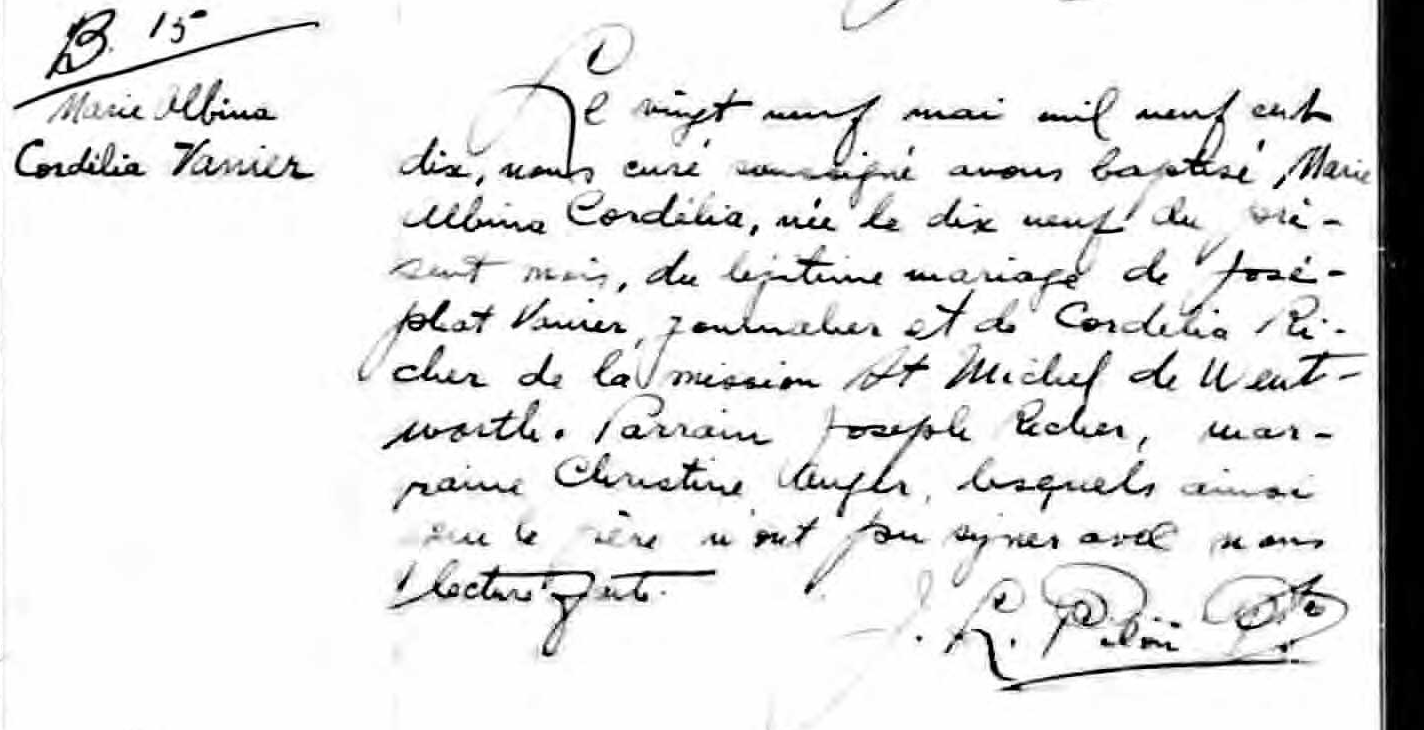 B. 15
Marie Albina
Cordélia Vanier
Le vingt neuf mai mil neuf cent
dix, nous curé soussigné avons baptisé, Marie
Albina Cordélia, née le dix neuf du pré-
sent mois, du légitime mariage de José-
phat Vanier, journalier et de Cordélia Ri-
cher de la mission St Michel de Went-
worth. Parrain Joseph Richer, mar-
raine Christine Auger, lesquels ainsi
que le père n'ont pu signer avec nous
lecture faite.
J. L. Pilon Ptre